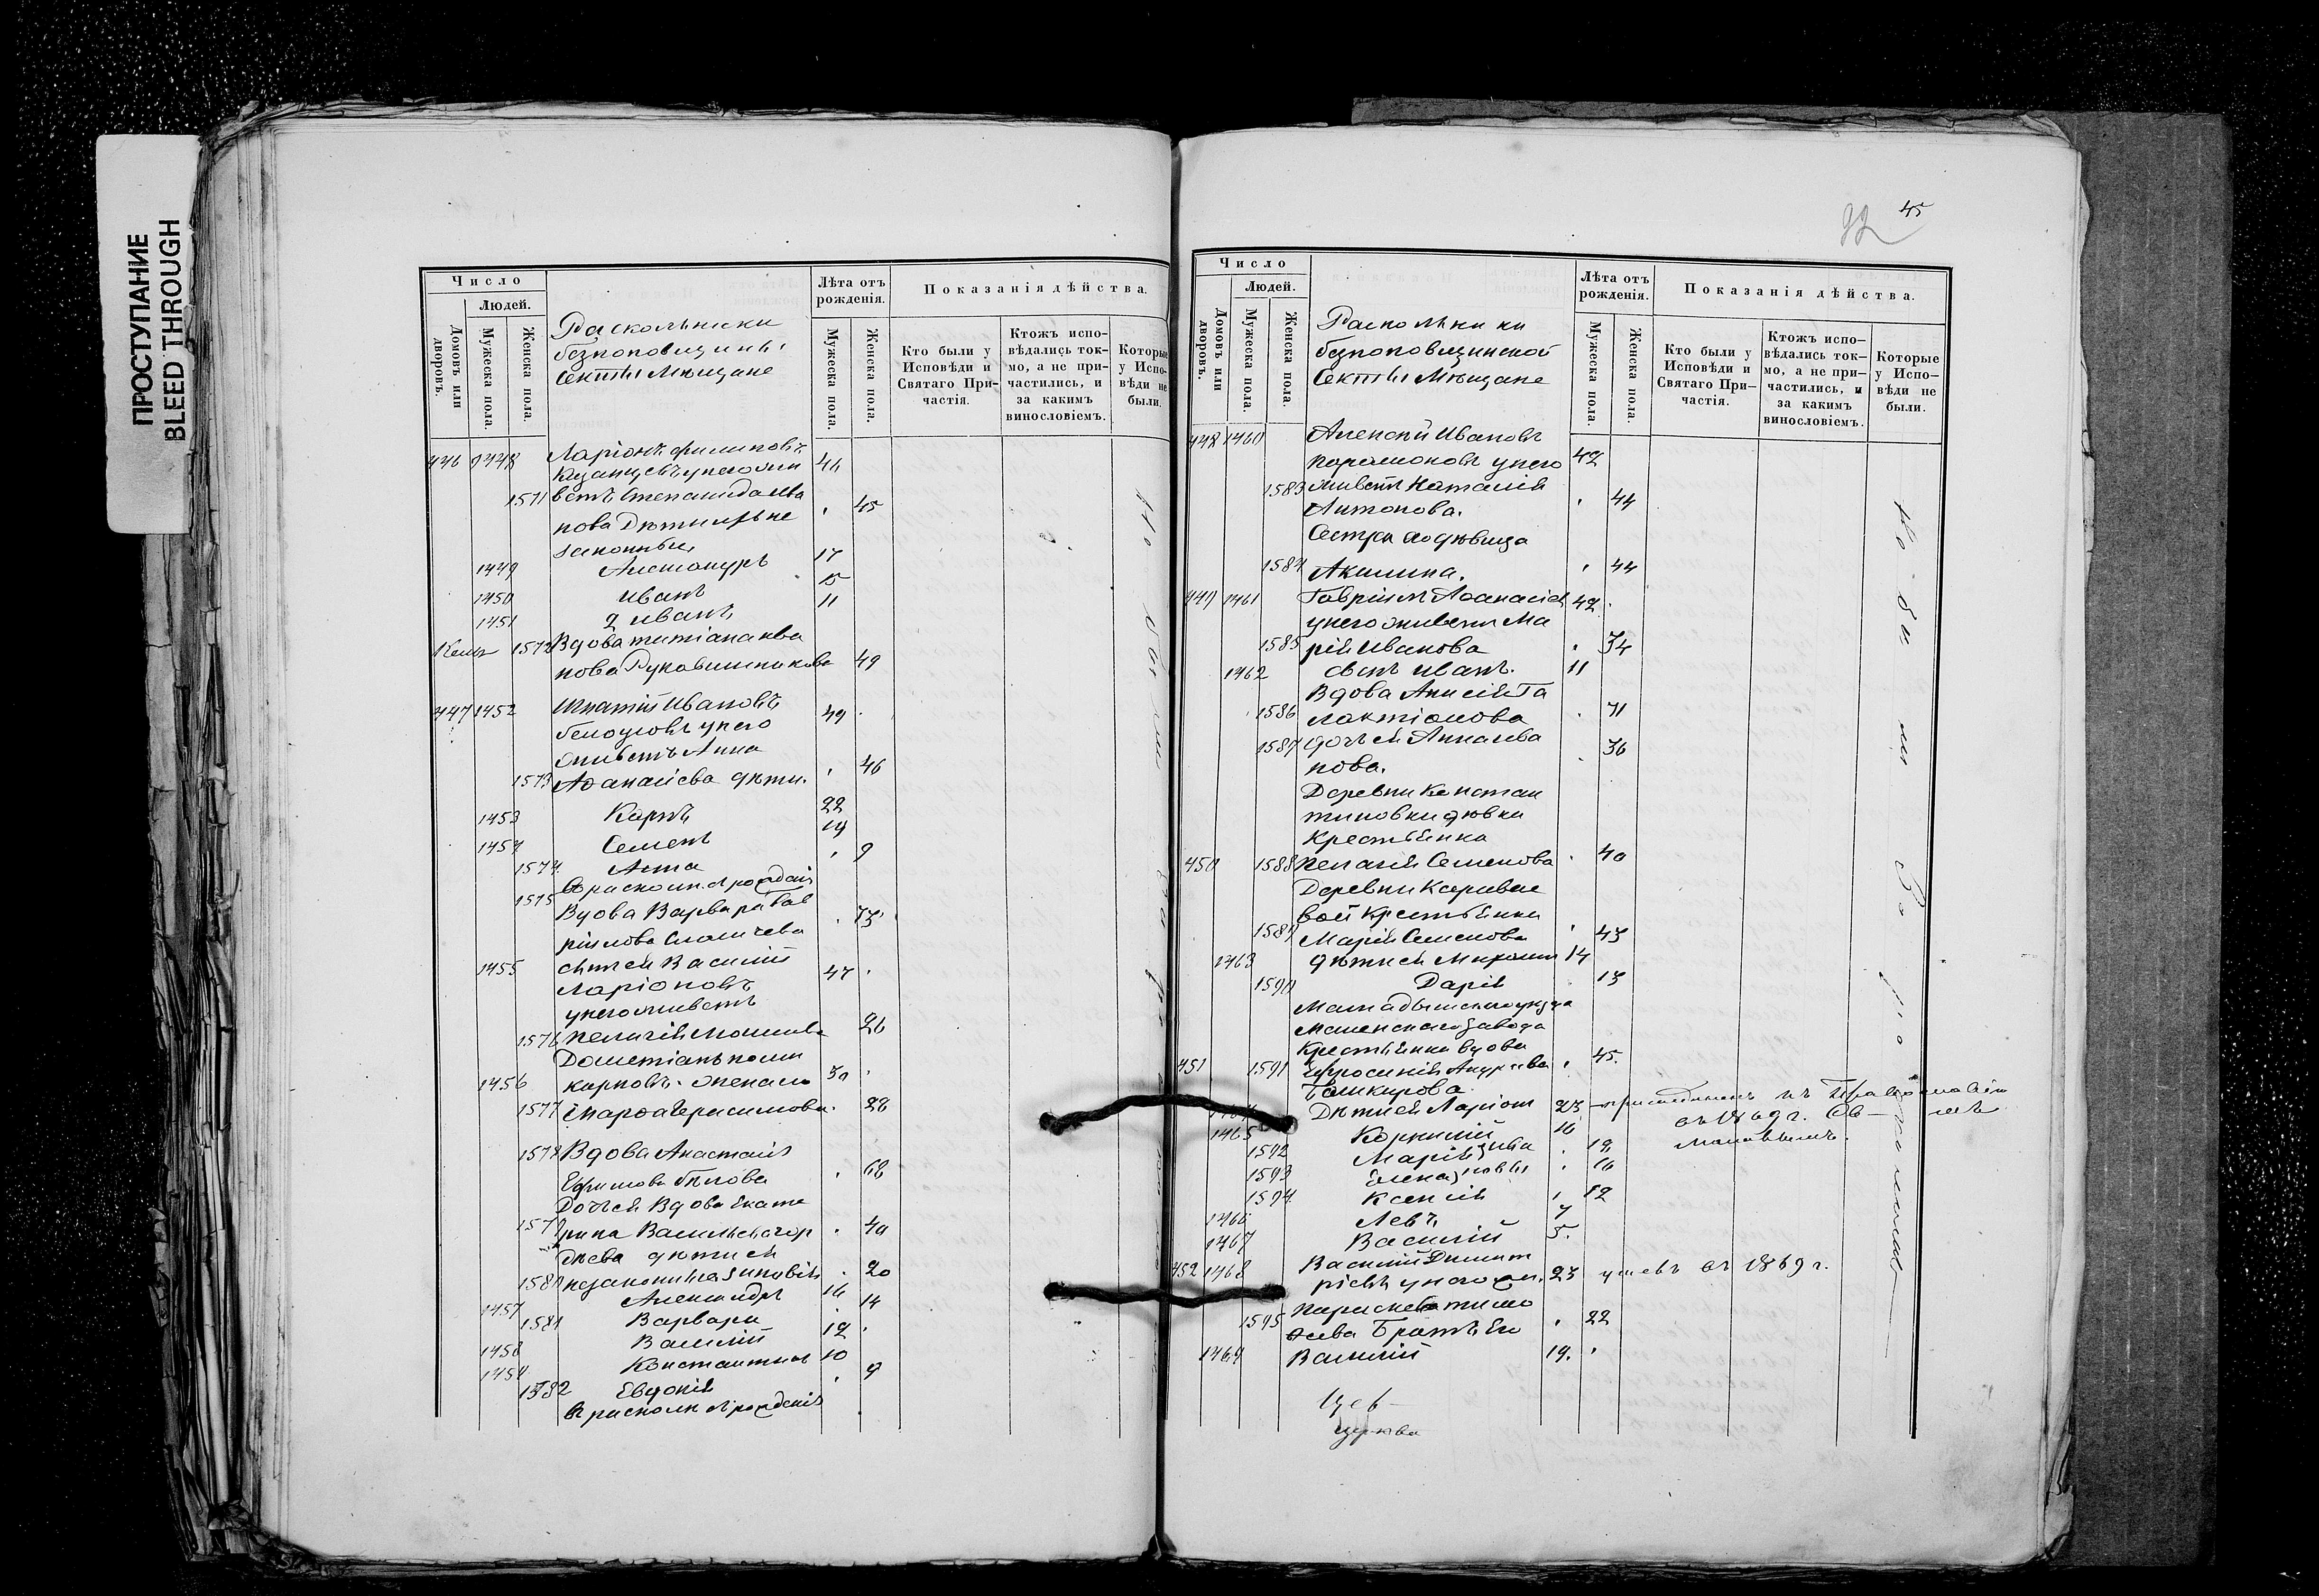 ПРОСТУПАНИЕ
BLEED THROUGH
Число
Людей.
Домовъ или дворовъ.
Мужеска пола.
Женска пола.
Раскольники
безпоповщины
секты Мѣщане
Лѣта отъ рожденія.
Мужеска пола.
Женска пола.
Показанія дѣйства.
Кто были у Исповѣди и Святаго Причастія.
Ктожъ исповѣдались токмо, а не причастились, и за какимъ винословіемъ.
Которые у Исповѣди не были.
446 Ларіонъ Филиповъ
Казанцевъ у него жи 44
1571 ветъ Степанида Ива
нова Дѣти ихъ не 45
законныя
1449 17
1450 Иванъ 15
1451 2 Иванъ 11
1572 Вдова Татіана Ива
нова Рукавишникова 49
447 1452 Игнатій Ивановъ
Белоусовъ у него 49
живетъ Анна
1573 Аѳанасіева дѣти. 46
1453 Карпъ 22
1454 Семенъ 19
1574 Анна 9
Въ расколѣ отъ рожденія
1575 Вдова Варвара Гав
ріилова 73
1455 сынъ ей Василій
Ларіоновъ 47
у него живетъ
1576 Пелагія 26
Дометіанъ Поли
1456 карповъ жена его 30
1577 Марѳа Герасимова 28
1578 Вдова Анастасія
Ефимова Бѣлова 68
Дочь ей Вдова Екате
1579 рина Васильева 40
дѣева дѣти ей
1580 незаконныя Зиновія 20
1457 Александръ 16
1581 Варвара 14
1458 Василій 12
1459 Константинъ 10
1582 Евдокія 9
Въ расколѣ отъ рожденія
45
92
Число
Людей.
Домовъ или дворовъ.
Мужеска пола.
Женска пола.
Раскольники
безпоповщинской
секты Мѣщане
Лѣта отъ рожденія.
Мужеска пола.
Женска пола.
Показанія дѣйства.
Кто были у Исповѣди и Святаго Причастія.
Ктожъ исповѣдались токмо, а не причастились, и за какимъ винословіемъ.
Которые у Исповѣди не были.
448 1460 Алексѣй Ивановъ
Парамоновъ у него 42
1583 живетъ Наталія
Антонова. 44
Сестра его дѣвица
1584 Акилина. 44
449 1461 Гавріилъ Аѳанасіевъ 42
у него живетъ Ма
1585 рія Иванова 34
1462 сынъ Иванъ. 11
Вдова Анисія Га
1586 лактіонова 71
1587 дочь ей Анна Ива
нова. 36
Деревни Констан
тиновки дѣвка
Крестьянка
450 1588 Пелагія Семенова 40
Деревни Каравае
вой Крестьянка
1589 Марія Семенова 43
1463 дѣти ей 14
1590 Дарія 13
Мамадышскаго уѣзда
завода
Крестьянка вдова
451 1591 Ефросинія Андреева 45
Башкирова
Дѣти ей Ларіонъ 23 присоединенъ къ Православію
въ 1869 г.
1465 Корнилій 16
1592 Марія 19
1593 Елена 16
1594 Ксенія 12
1466 Левъ 7
1467 Василій 5
452 1468 Василій Димит
ріевъ у него жи. 23 умеръ въ 1869 г.
1595 Параскева Тимо
ѳеева Братъ Его 22
1469 Василій 19.